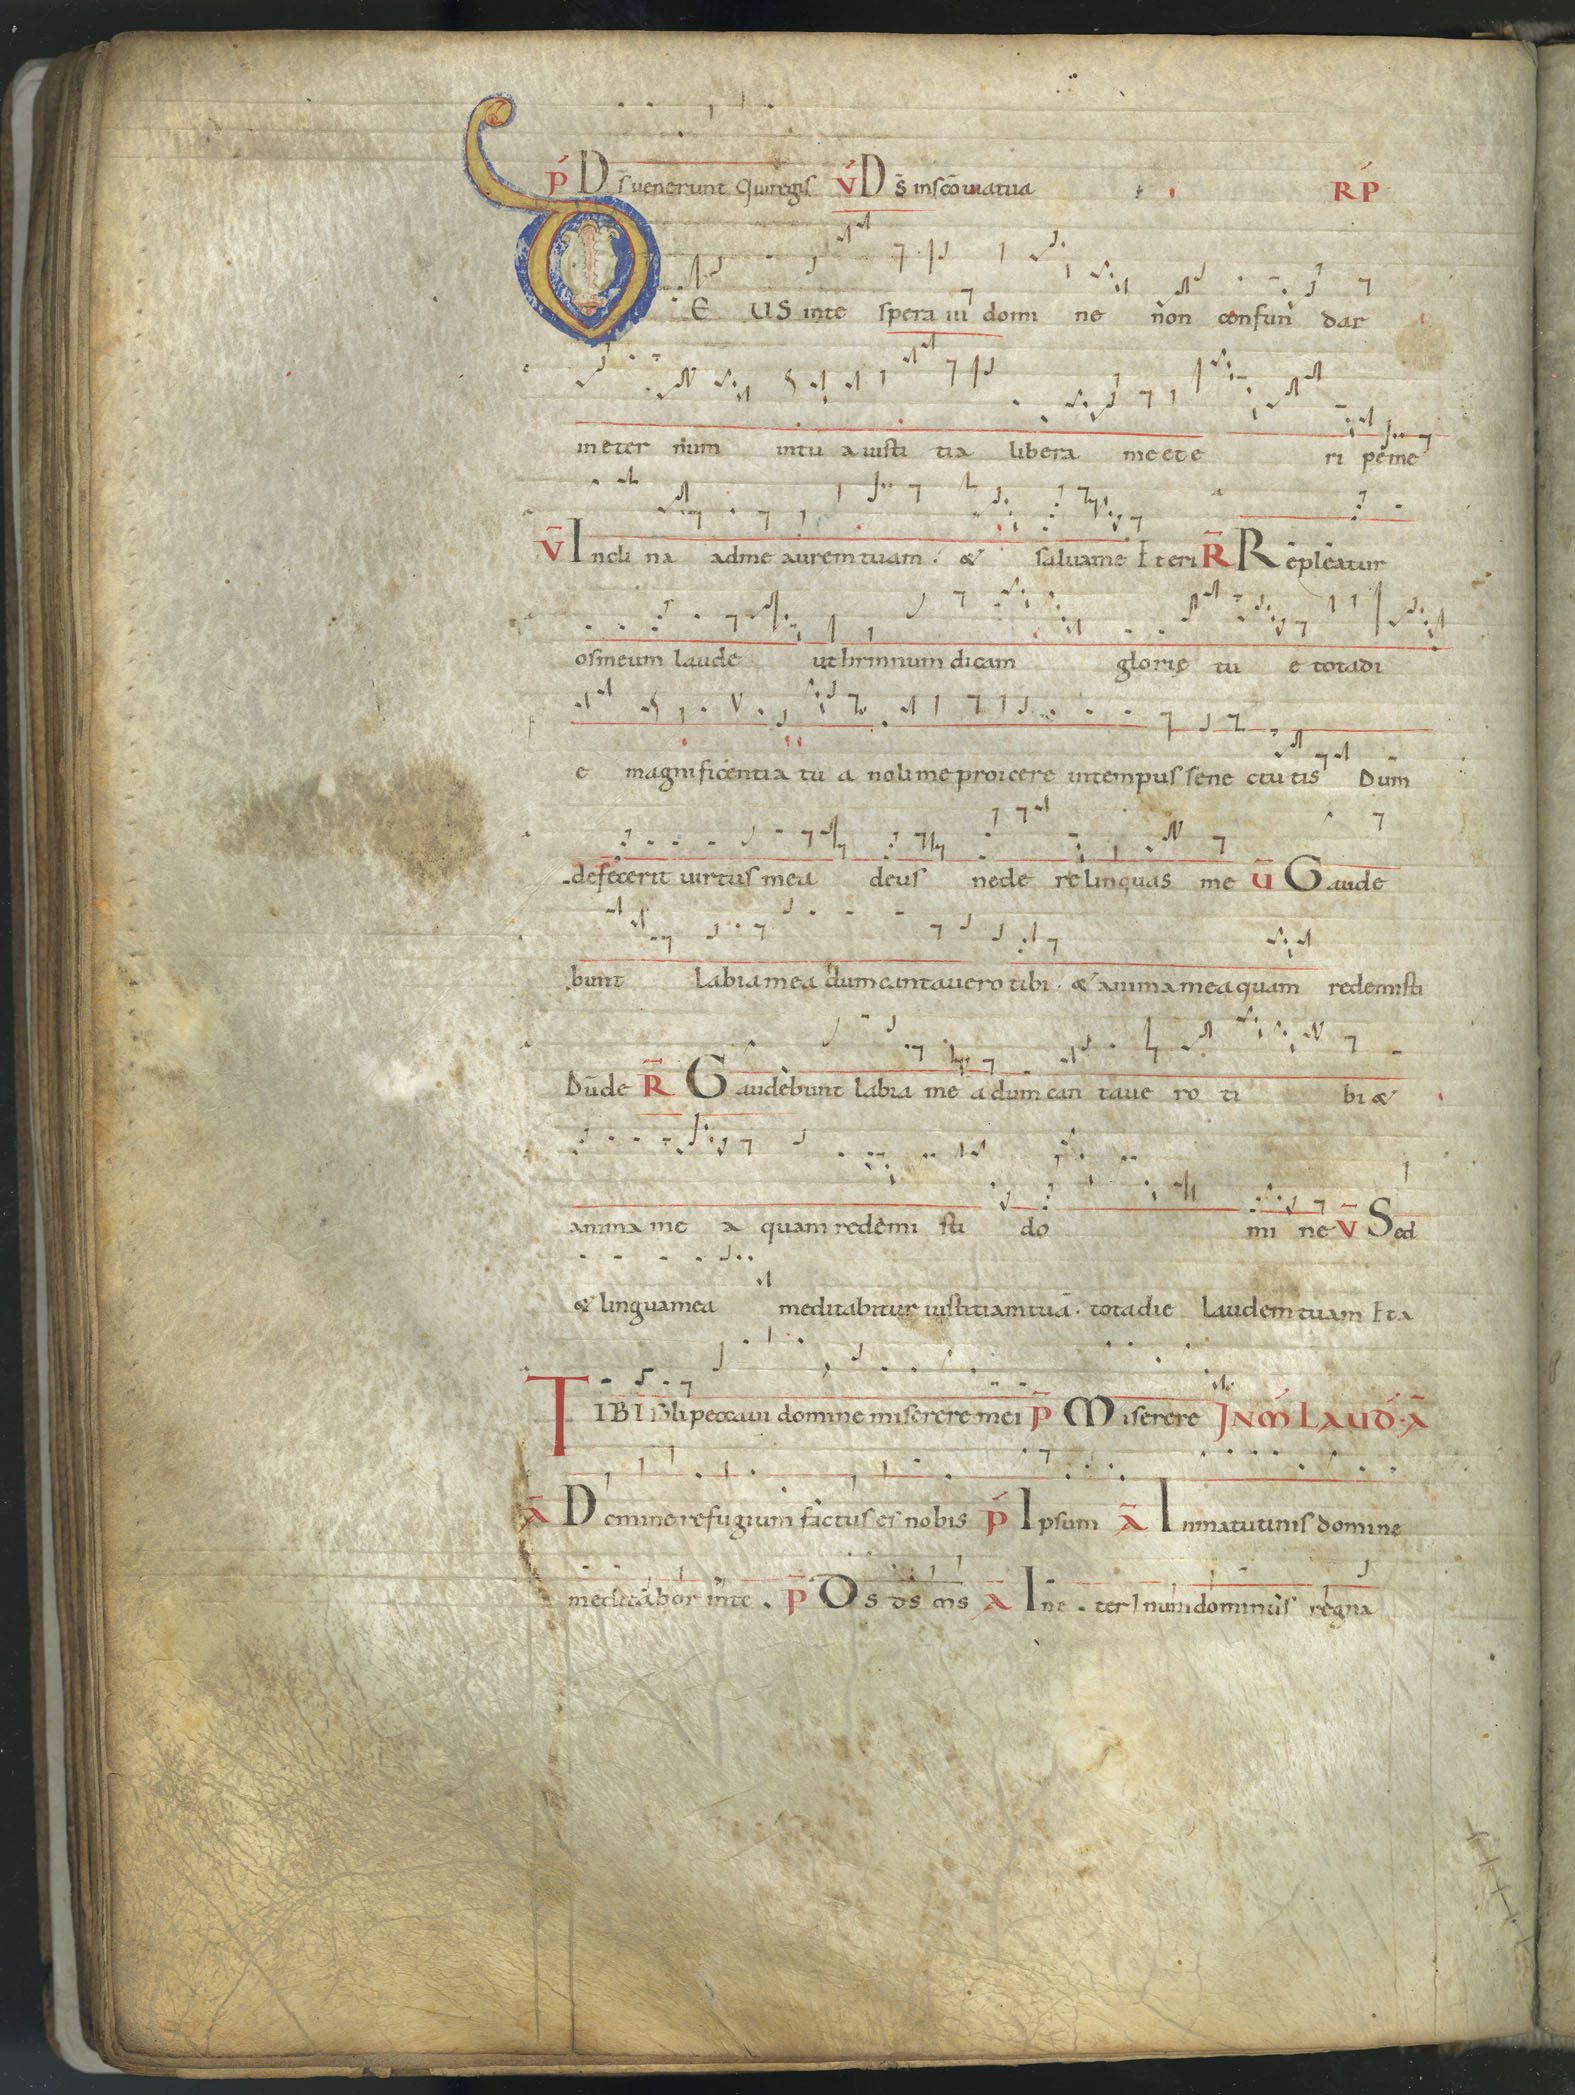 P D s̄ uenerunt Qui regis V D s̄ in scō uia tua RP
DEUS in te spera ui domi ne non confun dar
in eter num in tu a iusti tia libera me et e ri pe me
V Incli na ad me aurem tuam · & salua me Et eri R Repleatur
os meum laude ut himnum dicam glorie tu e tota di
e magnificentia tu a noli me proicere in tempus sene ctu tis Dum
defecerit uirtus mea deus ne de relinquas me U Gaude
bunt labia mea dum cantauero tibi · & anima mea quam redemisti
Dn̄e R Gaudebunt labia me a dum can taue ro ti bi &
anima me a quam redemi sti do mi ne V Sed
& lingua mea meditabitur iustitiam tuā · tota die laudem tuam Et a
TIBI soli peccaui domine miserere mei P Miserere IN M LAUD · A
A Domine refugium factus es nobis P Ipsum A In matutinis domine
meditabor in te · P Ds ds ms A In e ter num dominus regna